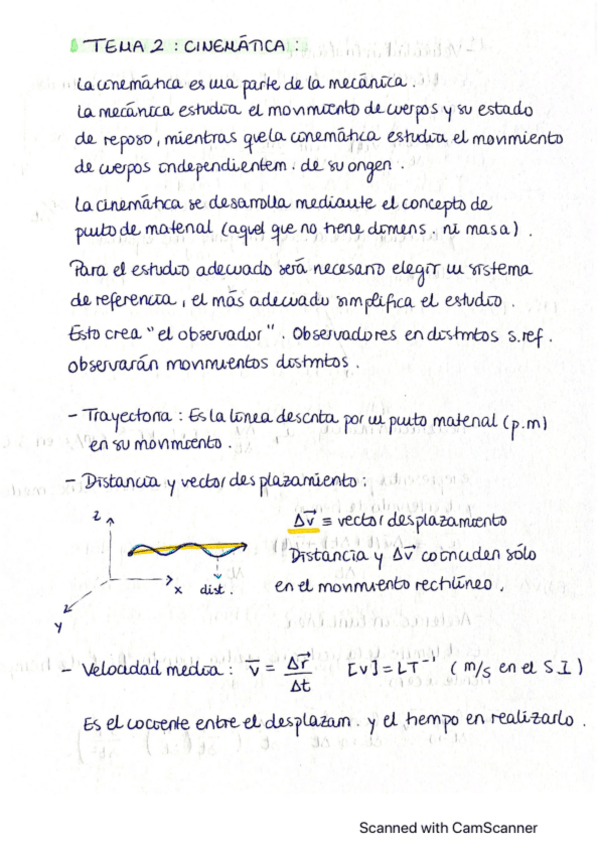 TEMA 2 : CINEMÁTICA :
La cinemática es una parte de la mecánica.
La mecánica estudia el movimiento de cuerpos y su estado
de reposo, mientras que la cinemática estudia el movimiento
de cuerpos independientem. de su origen.
La cinemática se desarrolla mediante el concepto de
punto de material (aquel que no tiene dimens. ni masa).
Para el estudio adecuado será necesario elegir un sistema
de referencia, el más adecuado simplifica el estudio.
Esto crea "el observador". Observadores en distintos s.ref.
observarán movimientos distintos.
- Trayectoria : Es la línea descrita por un punto material (p.m)
en su movimiento.
- Distancia y vector desplazamiento :
z
x
y
dist.
Δv⃗ ≡ vector desplazamiento
Distancia y Δv⃗ coinciden sólo
en el movimiento rectilíneo.
- Velocidad media : v⃗ = Δr⃗ / Δt [v] = LT⁻¹ (m/s en el S.I)
Es el cociente entre el desplazam. y el tiempo en realizarlo.
Scanned with CamScanner